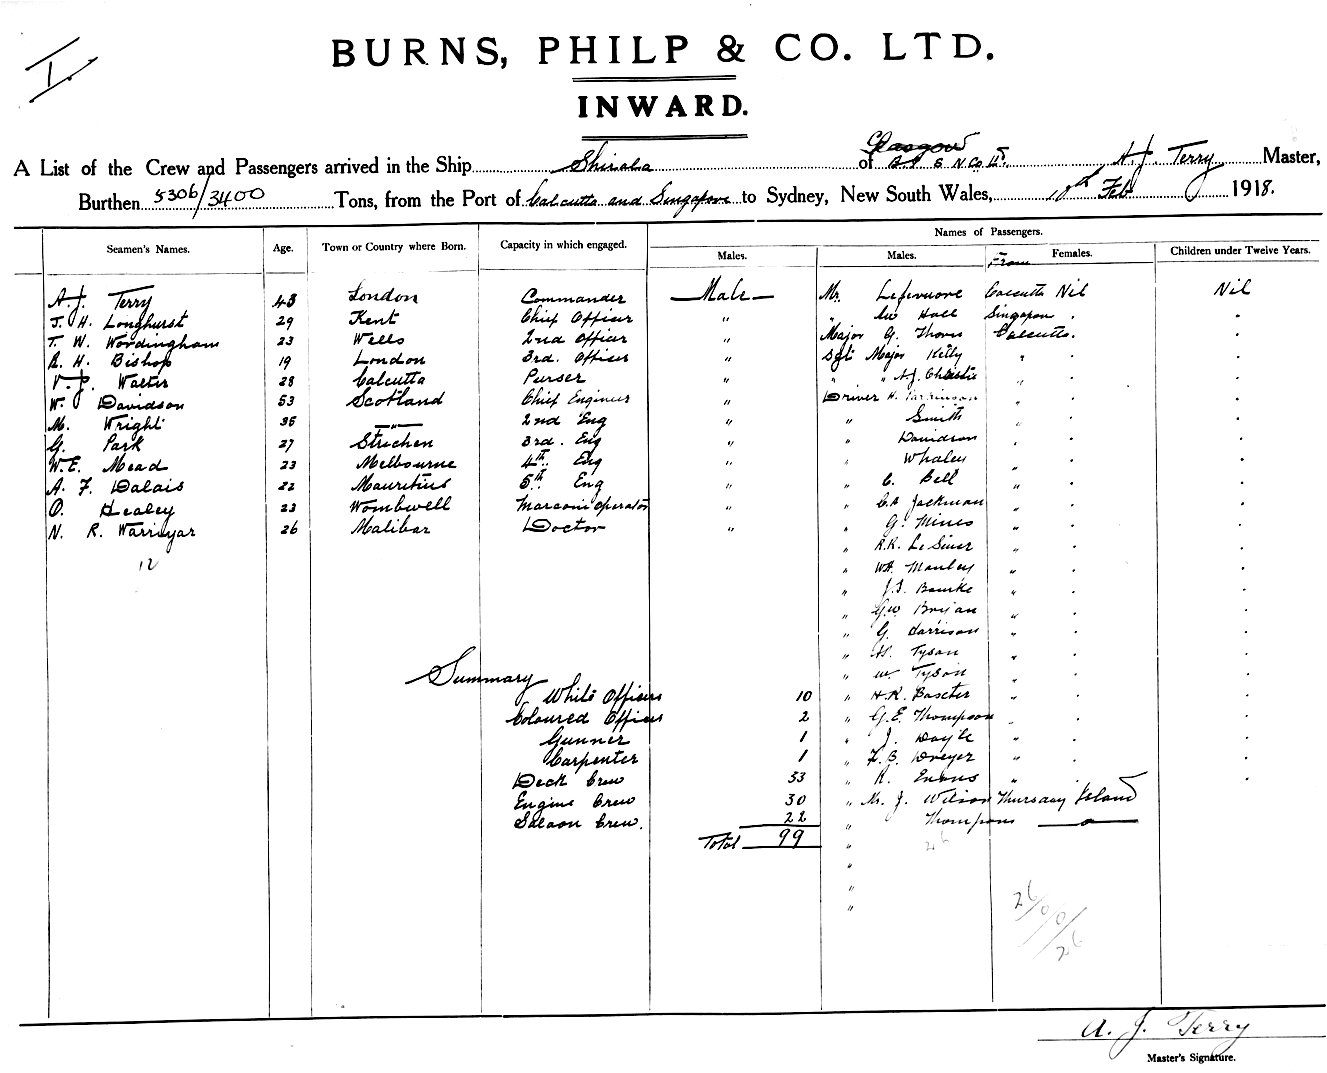 I.
BURNS, PHILP & CO. LTD.
INWARD.
Glasgow
A List of the Crew and Passengers arrived in the Ship Shirala of B. I. S. N. Co. Ld. A. J. Terry Master,
Burthen 5306/3400 Tons, from the Port of Calcutta and Singapore to Sydney, New South Wales, 18th Feb 1918.
Seamen's Names. Age. Town or Country where Born. Capacity in which engaged. Names of Passengers.
Males. Males. From Females. Children under Twelve Years.
A. J. Terry 43 London Commander Male Mr. Calcutta Nil Nil
J. H. Longhurst 29 Kent Chief Officer " " Hall Singapore .
T. W. Wordingham 23 Wells 2nd Officer " Major G. Calcutta.
R. H. Bishop 19 London 3rd. Officer " Sgt Major Kelly "
V. J. Walter 28 Calcutta Purser " " " A. J. Christie "
W. Davidson 53 Scotland Chief Engineer " Driver H. Parkinson "
M. Wright 36 " 2nd Eng " " Smith "
G. Park 27 Strichen 3rd. Eng " " Davidson "
W. E. Mead 23 Melbourne 4th Eng " " Whaley "
A. F. Dalais 22 Mauritius 5th Eng " " C. Bell "
O. Healey 23 Wombwell Marconi Operator " " C. A. Jackman "
N. R. Warriyar 26 Malibar Doctor " " G. Mines "
" R. R. Le Sueur "
12 " W. H. Manley "
" J. J. Bourke "
" G. W. "
" G. Harrison "
" H. Tyson "
Summary " W. Tyson "
White Officers 10 " H. R. Baxter "
Coloured Officers 2 " G. E. Thompson "
Gunner 1 " J. Doyle "
Carpenter 1 " F. B. Dreyer "
Deck Crew 33 " R. Evans "
Engine Crew 30 " Mr. J. Wilson Thursday Island
Saloon Crew. 22 " Thompson "
Total 99 " 26
"
"
"
26/0/0/26
A. J. Terry
Master's Signature.